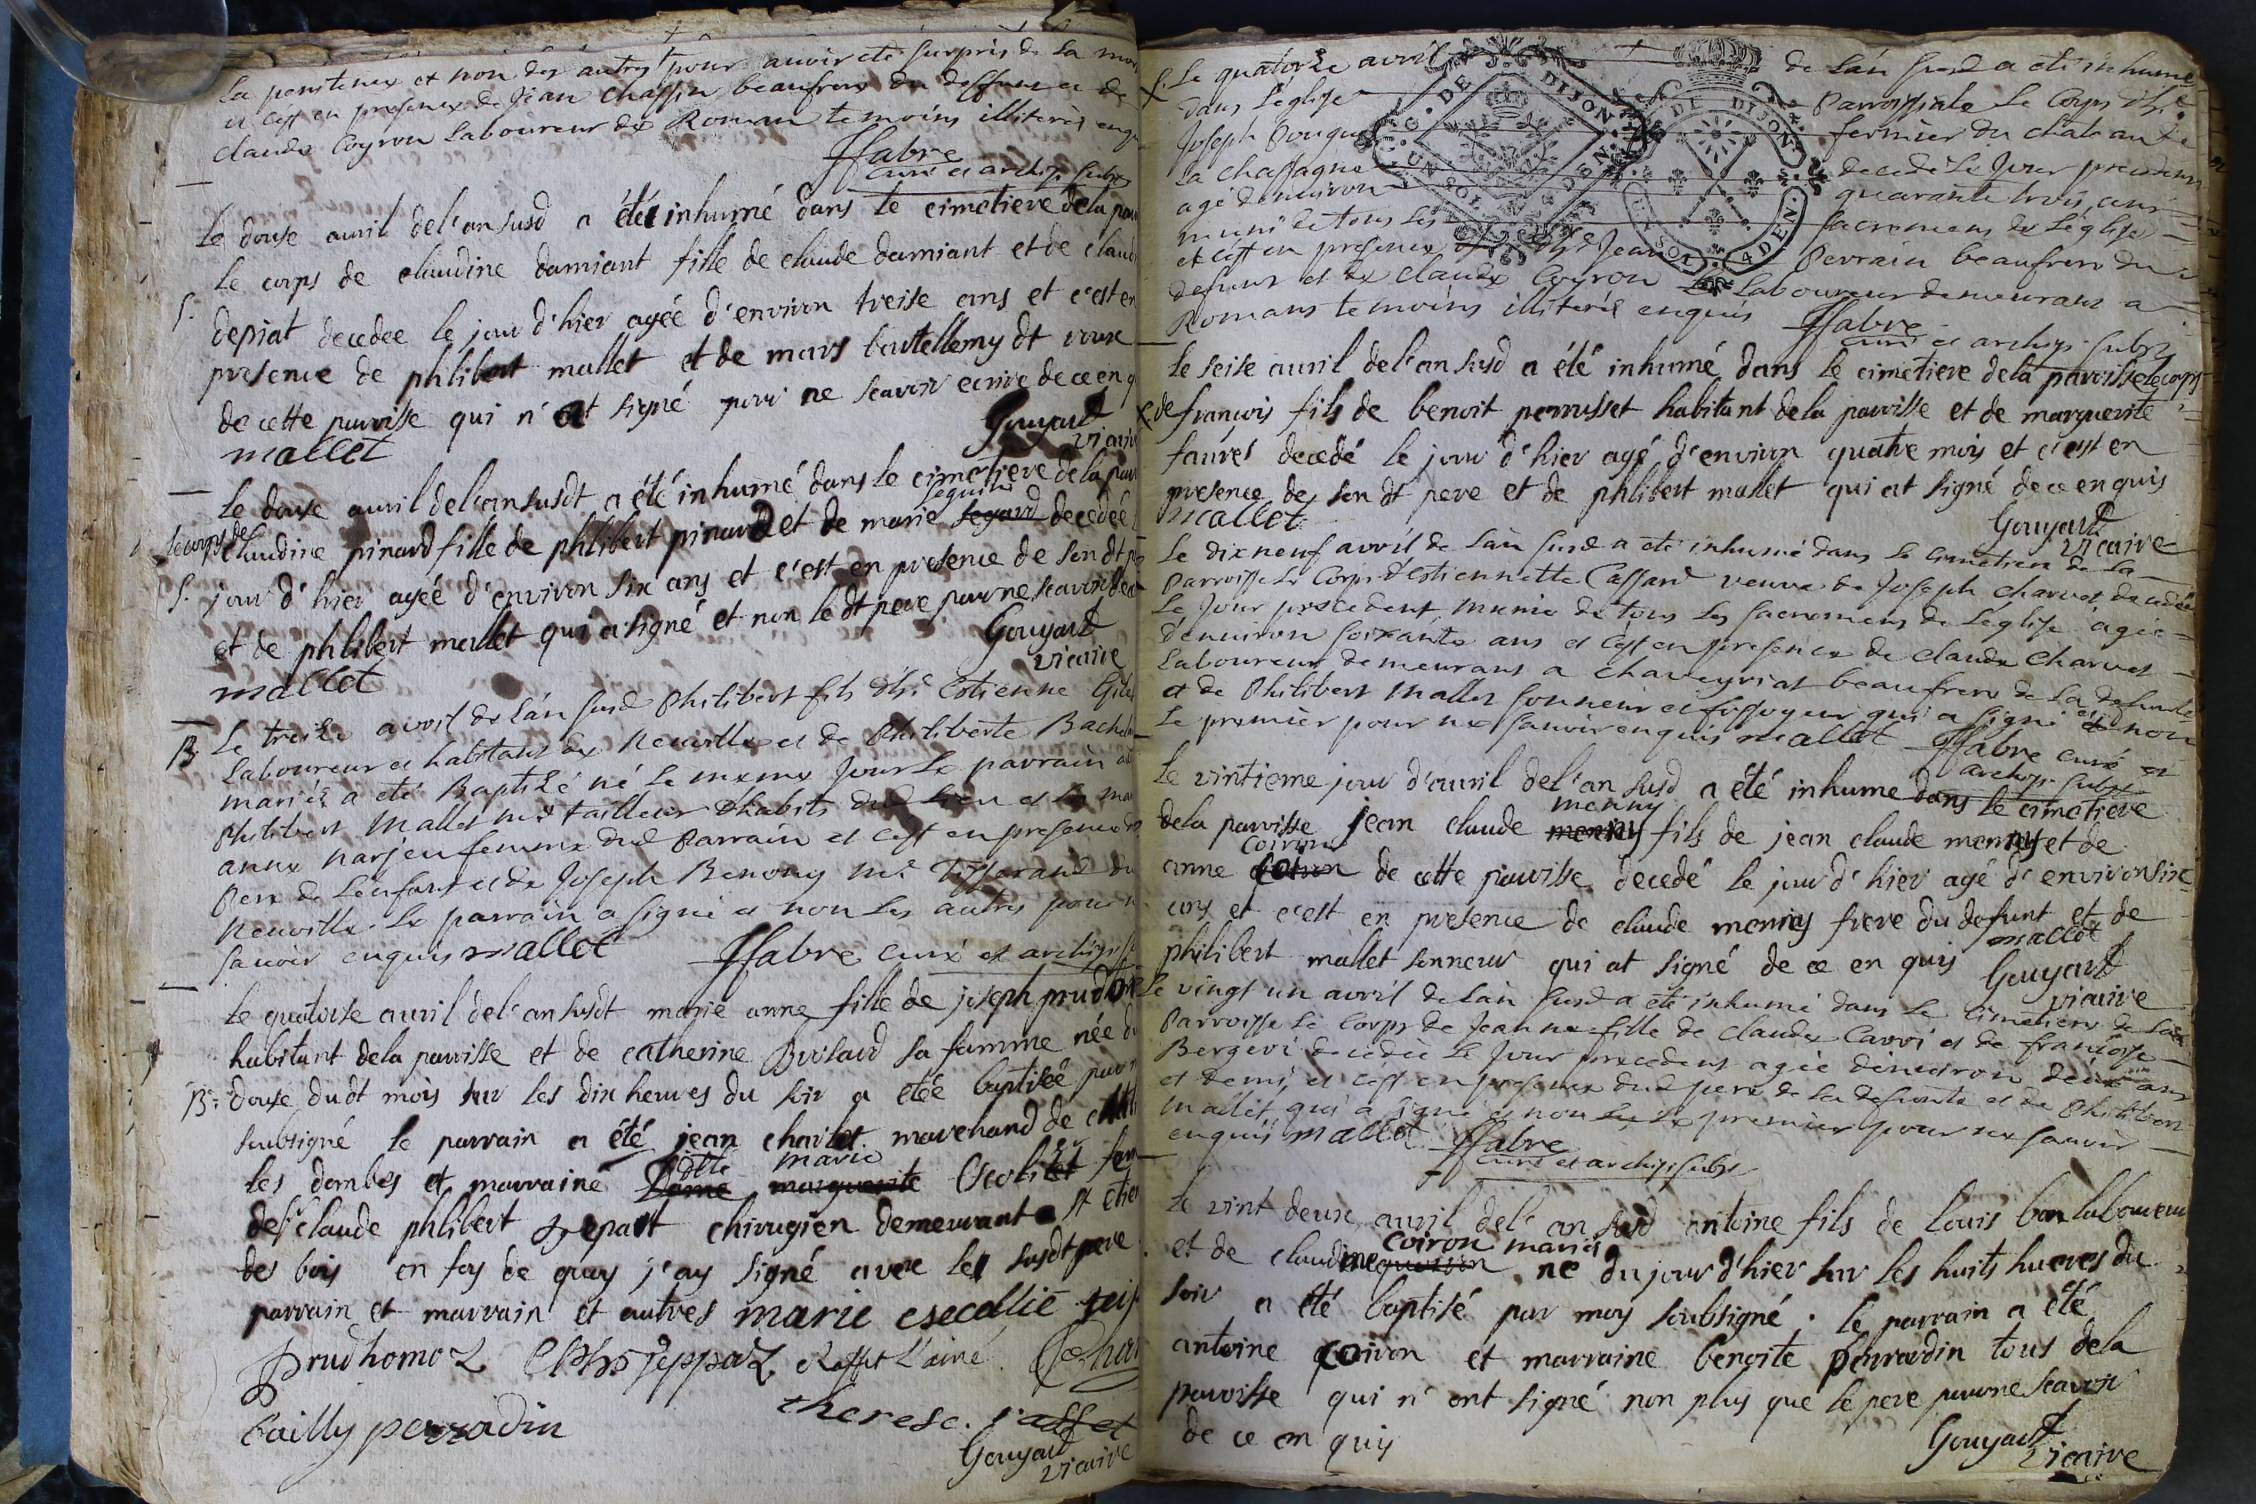 la penitence et non des autres pour avoir eté surpris de la mort
et c'est en presence de Jean Chaffin beaufrere du deffunt et de
claude Coyron laboureur de Roman temoins illiterés enquis
ffabre
curé et archip. subs
Le douse avril del'an susd a étéé inhumé dans le cimetiere dela par
le corps de claudine damiant fille de claude damiant et de claud
S.
depiat decedee le jour d'hier agéé d'environ treise ans et c'est en
presence de phlibert mallet et de mars bartellemy dt roux
de cette parroisse qui n'ont signé pour ne scavoir ecrire de ce en q
mallet
Gouyard
vicaire
Le douse avril del'an susdt a été inhumé dans le cimetiere dela par
le corps de
seguin
claudine pinard fille de phlibert pinard et de marie segard decedéé
S. jour d'hier agéé d'environ six ans et c'est en presence de son dt p
et de phlibert mallet qui a signé et non le dt pere pour ne scavoir de ce
Gouyard
vicaire
mallet
B. Le treize avril de l'an susd Philibert fils d'hte Estienne Gile
laboureur et habitant de Neuville et de Philiberte Bachel
mariés a eté Baptizé né le meme Jour le parrain a
Philibert Mallet me tailleur d'habits dud lieu et la mar
anne narjeu femme dud Parrain et c'est en presence du
Pere de l'enfant et de Joseph Benony me Tisserand du
Neuville. Le parrain a signé et non les autres pour n
savoir enquis mallet ffabre curé et archip. s
Le quatorse avril del'an susdt marie anne fille de joseph prudho
habitant dela parroisse et de catherine Brisard sa famme née du
B: douse dudt mois sur les dix heures du soir a etéé baptiséé par m
subsigné le parrain a été jean charlet marchand de chati
dlle marie
les dombes et marraine Dame marguerite Escoliet fem
del' claude phlibert Jepart chirugien demeurant a st etien
des bois en foy de quoy j'ay signé avec les susdt pere
parrain et marrain et autres marie esecollie
Prudhomoz Clphs jeppaz raffet l'ainé Char
bailly perradin therese. raffet
Gouyard
vicaire
S. Le quatorze avril de l'an susd a eté inhumé
dans l'eglise Parroissiale le Corps d'hte
Joseph Pouque fermier du chateau de
la chassagne decedé le Jour precedent
agé d'environ quarante trois ans
muni de tous les sacremens de l'eglise
et c'est en presence d'hte Jean Perrain beaufrere du
defunt et de claude Coyron laboureur demeurant a
Romans temoins illiterés enquis ffabre
curé et archip. subs
Le seise avril del'an susd a été inhumé dans le cimetiere dela parroisse le corps
de françois fils de benoit perrusset habitant dela parroisse et de marguerite
faures decedé le jour d'hier agé d'environ quatre mois et c'est en
presence de son dt pere et de phlibert mallet qui at signé de ce en quis
mallet
Gouyard
vicaire
Le dixneuf avril de l'an susd a eté inhumé dans le cimetiere de la
Parroisse le Corps d'Estiennette Cassard veuve de Joseph Charvet decedée
le Jour precedent munie de tous les sacremens de l'eglise agée
d'environ soixante ans et c'est en presence de claude Charvet
laboureur demeurant a Chaveyriat beaufrere de la defunte
et de Philibert Mallet sonneur et fossoyeur qui a signé et non
le premier pour ne savoir enquis mallet ffabre curé et
archip. subs
Le vintieme jour d'avril del'an susd a été inhume dans le cimetiere
menny
dela parroisse jean claude menny fils de jean claude menny et de
coiron
anne coiron de cette parroisse decedé le jour d'hier agé d'environ six
ans et c'est en presence de claude menny frere du defunt et de
philibert mallet sonneur qui at signé de ce en quis
mallet
Gouyard
vicaire
Le vingt un avril de l'an susd a eté inhumé dans le cimetiere de la
Parroisse le Corps de Jeanne fille de Claude Carri et de françoise
Bergeri decedée le Jour precedent agée d'environ deux ans
et demi, et c'est en presence dud pere de la defunte et de Philibert
Mallet, qui a signé et non le premier pour ne savoir
enquis mallet ffabre
curé et archip. subs
Le vint deux avril del'an susd antoine fils de louis bon laboureur
coiron mariés
et de claudine né du jour d'hier sur les huits hueres du
soir a été baptisé par moy soubsigné. le parrain a été
antoine coiron et marraine benoite perrardin tous dela
parroisse qui n'ont signé non plus que le pere pour ne scavoir
de ce en quis
Gouyard
vicaire
G. DE DIJON
UN SOL 4 DEN.
G. DE DIJON
UN SOL 4 DEN.